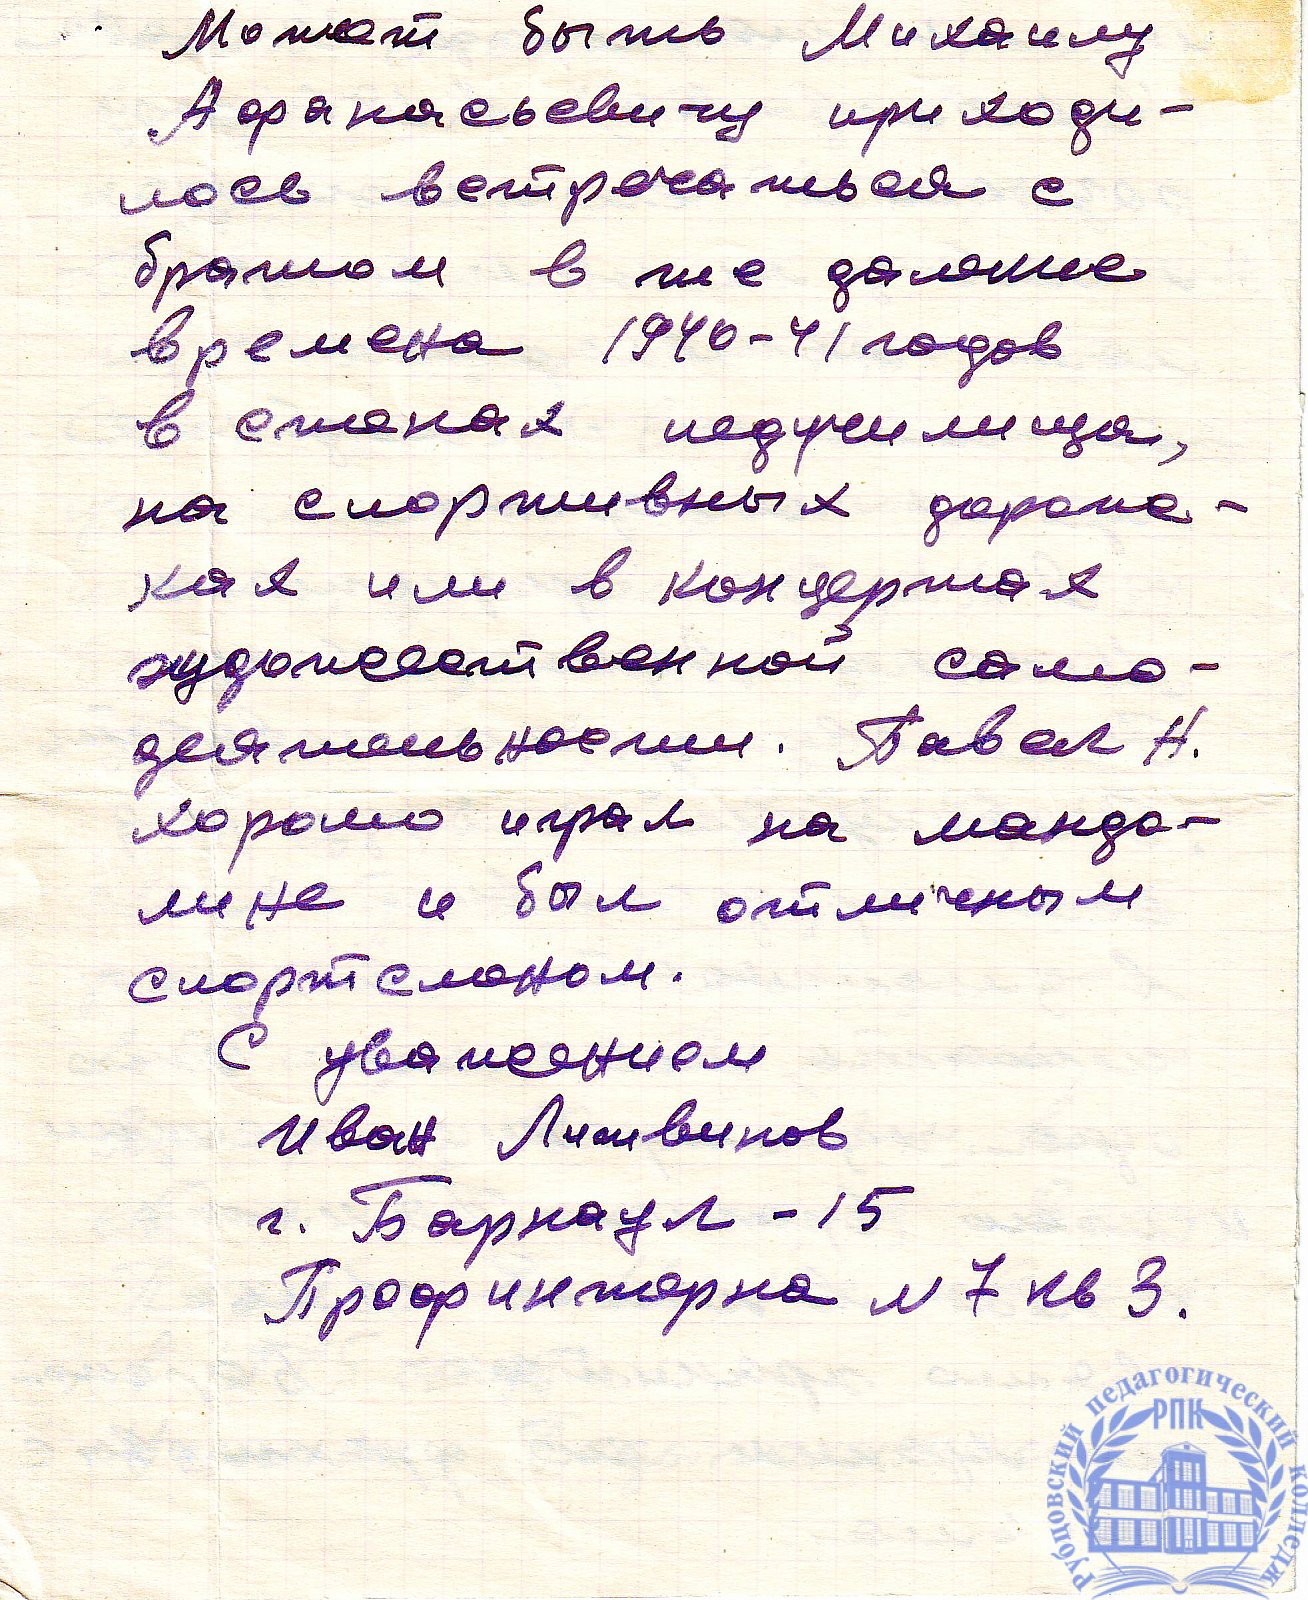 Может быть Михаилу
Афанасьевичу приходи-
лось встречаться с
братом в те далекие
времена 1940-41 годов
в стенах педучилища,
на спортивных дорож-
ках или в концертах
художественной само-
деятельности. Павел Н.
хорошо играл на мандо-
лине и был отличным
спортсменом.
С уважением
Иван Литвинов
г. Барнаул - 15
Профинтерна № 7 кв 3.
Рубцовский педагогический колледж
РПК